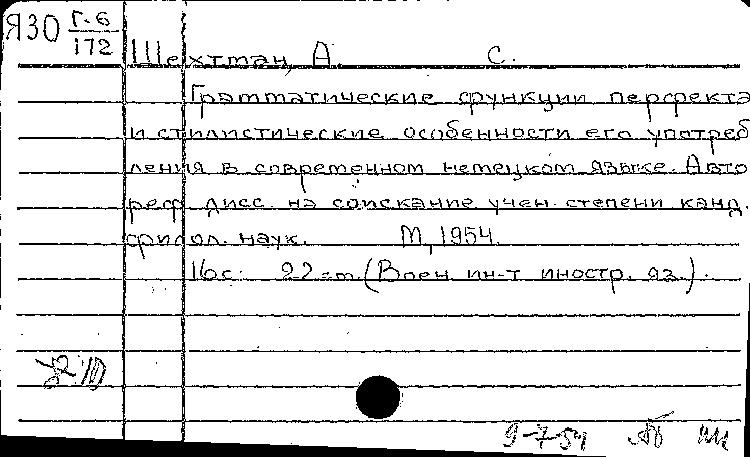 Я30 Г-6
172
Шехтман, А. С.
Грамматические функции перфекта
и стилистические особенности его употреб
ления в современном немецком языке. Авто
реф. дисс. на соискание учен. степени канд.
филол. наук. М, 1954.
16с. 22см. (Воен. ин-т иностр. яз.).
9-7-54